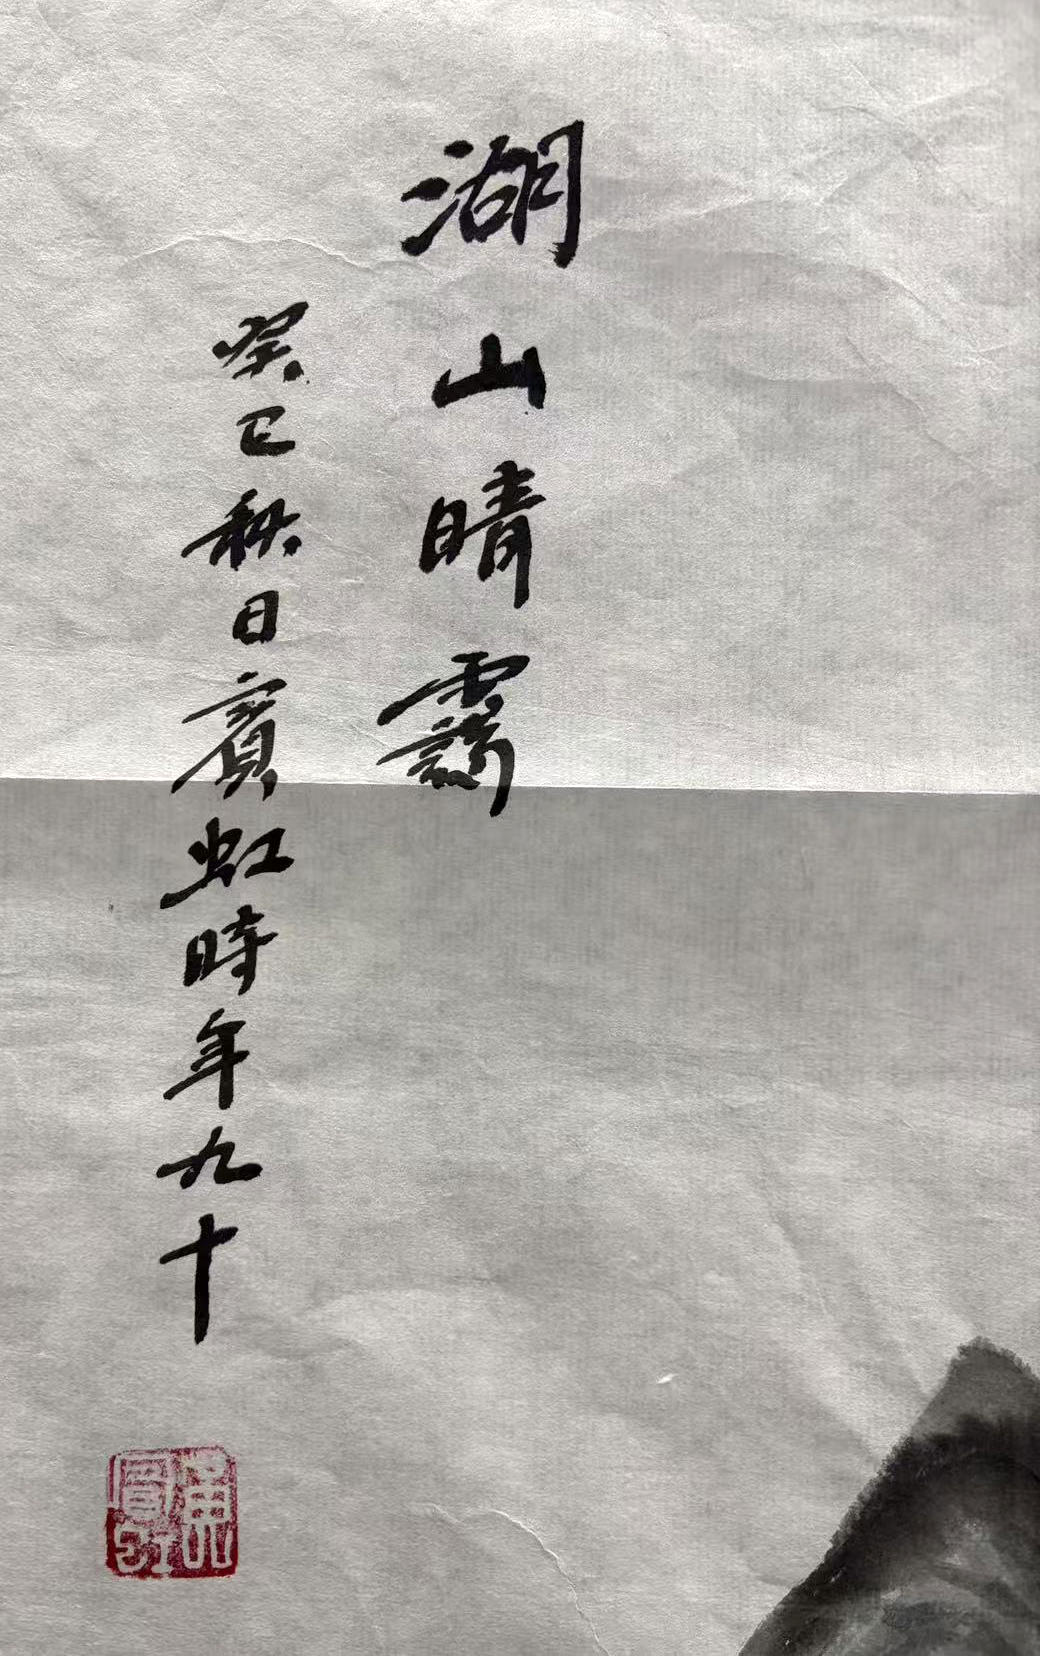 湖山晴靄
癸巳秋日賓虹時年九十
黃賓虹